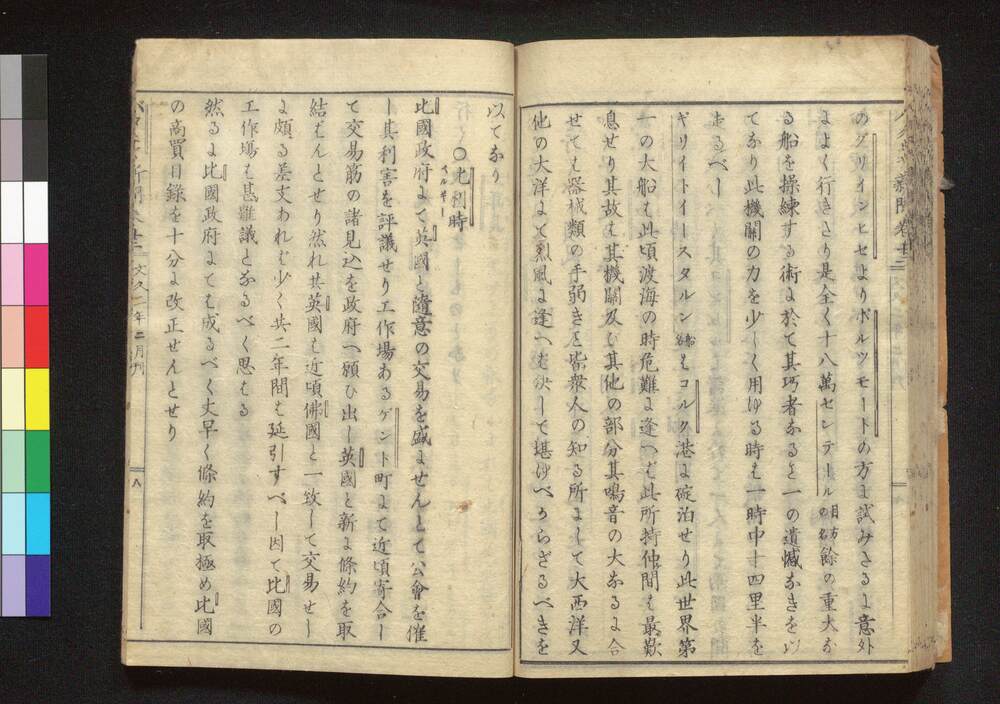 のグリインヒセよりポルツモートの方に試みたるに意外
によく行きたり是全く十八萬センテナール目方の名餘の重大な
る船を操練する術に於て其巧者なると一の遺憾なきを以
てなり此機關の力を少しく用ゆる時は一時中十四里半を
走るべし
ギリイトイースタルン船名はコルク港に碇泊せり此世界第
一の大船は此頃渡海の時危難に逢へば此所持仲間は最歎
息せり其故は其機關及び其他の部分其鳴音の大なるに合
せても器械類の手弱きと皆衆人の知る所にして大西洋又
他の大洋にて烈風に逢へば決して堪ゆべからざるべきを
以てなり
○比利時ベルギー
比國政府にて英國と隨意の交易を盛にせんとて公會を催
し其利害を評議せり工作場あるゲント町にて近頃寄合し
て交易筋の諸見込を政府へ願ひ出し英國と新に條約を取
結ばんとせり然れ共英國は近頃佛國と一致して交易せし
に頗る差支われば少く共二年間は延引すべし因て比國の
工作場は甚難議となるべく思はる
然るに比國政府にても成るべく丈早く條約を取極め比國
の商買目録を十分に改正せんとせり
新聞 卷廿二 文久二年二月刊 八